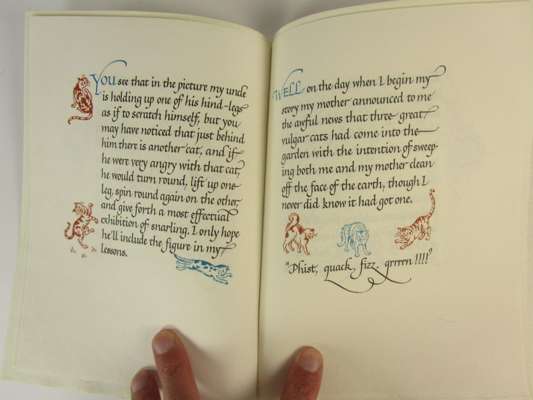 You see that in the picture my uncle
is holding up one of his hind-legs
as if to scratch himself, but you
may have noticed that just behind
him there is another cat, and if
he were very angry with that cat,
he would turn round, lift up one
leg, spin round again on the other,
and give forth a most effectual
exhibition of snarling. I only hope
he'll include the figure in my
lessons.
WELL on the day when I begin my
story my mother announced to me
the awful news that three great
vulgar cats had come into the
garden with the intention of sweep-
ing both me and my mother clean
off the face of the earth, though I
never did know it had got one.
"Phist, quack, fizz, grrrrn!!!!"